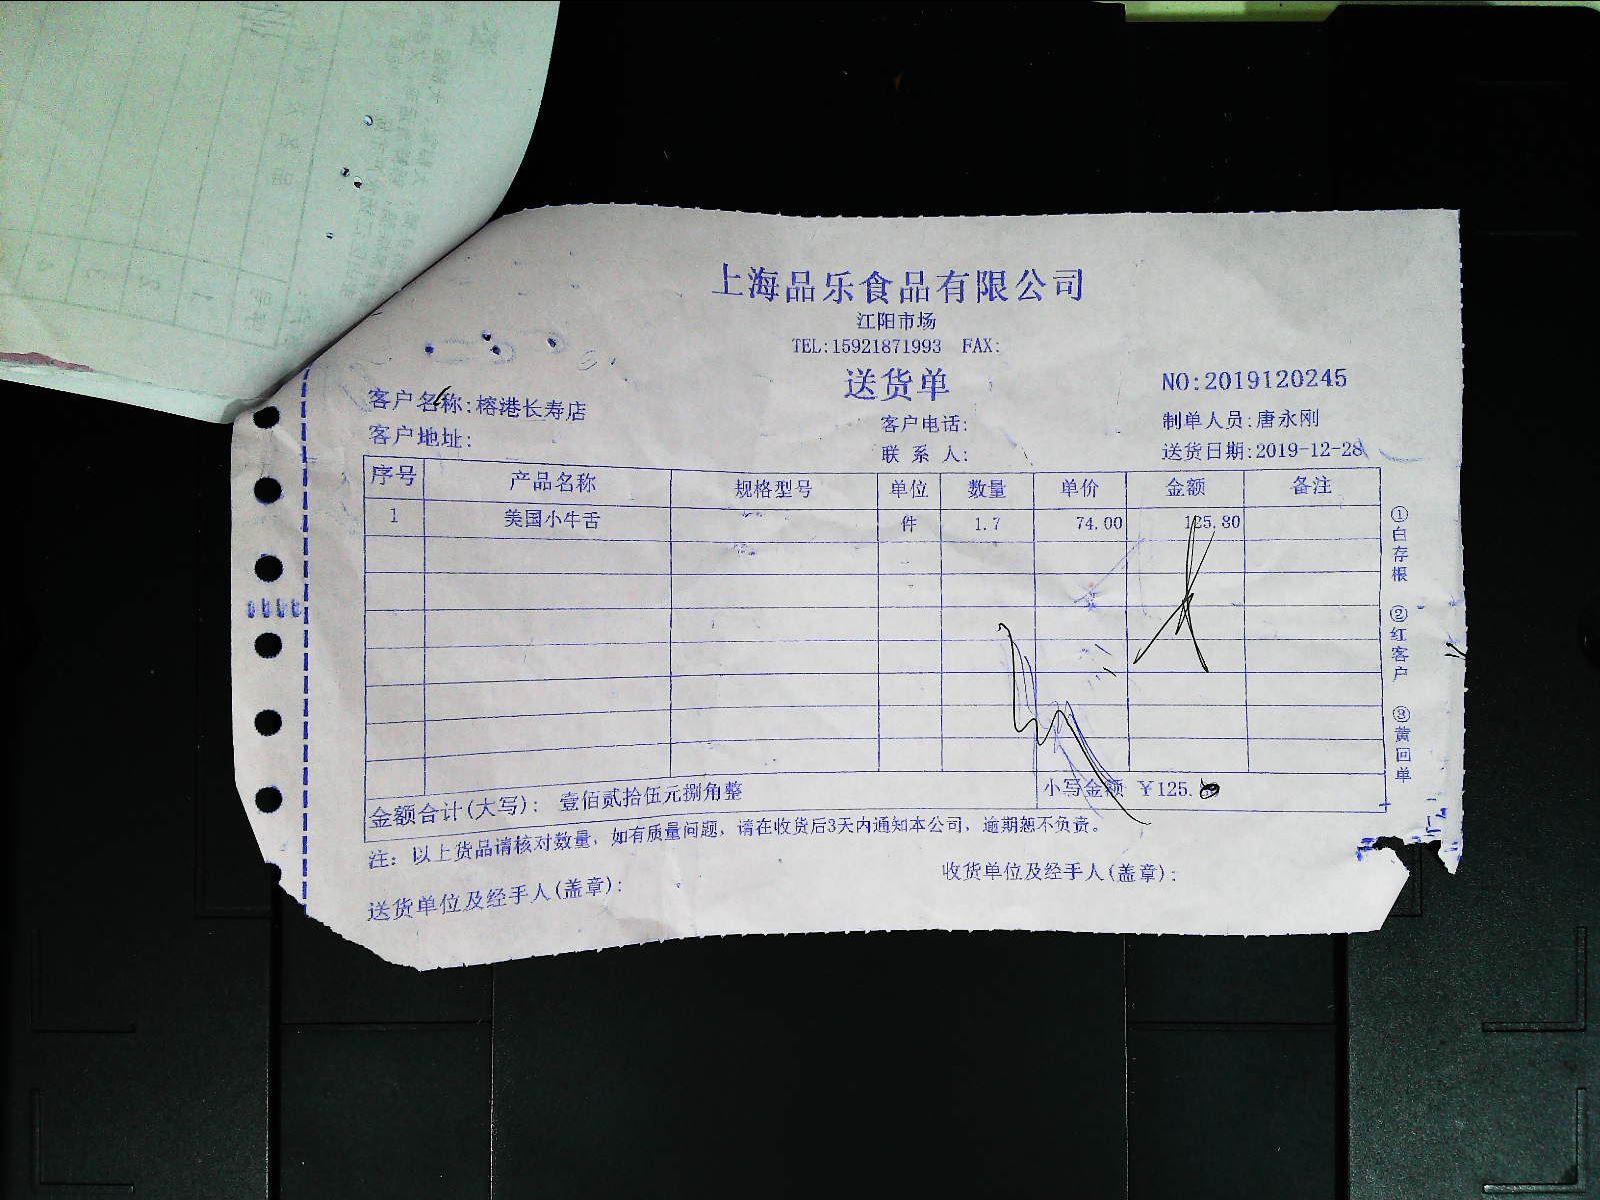 上海品乐食品有限公司
江阳市场
TEL:15921871993 FAX:
送货单
NO:2019120245
客户名称:榕港长寿店
客户电话:
制单人员:唐永刚
客户地址:
联 系 人:
送货日期:2019-12-28
序号 产品名称 规格型号 单位 数量 单价 金额 备注
1 美国小牛舌 件 1.7 74.00 125.80
金额合计(大写): 壹佰贰拾伍元捌角整 小写金额 ¥125.
注: 以上货品请核对数量, 如有质量问题, 请在收货后3天内通知本公司, 逾期恕不负责。
送货单位及经手人(盖章):
收货单位及经手人(盖章):
①白存根 ②红客户 ③黄回单